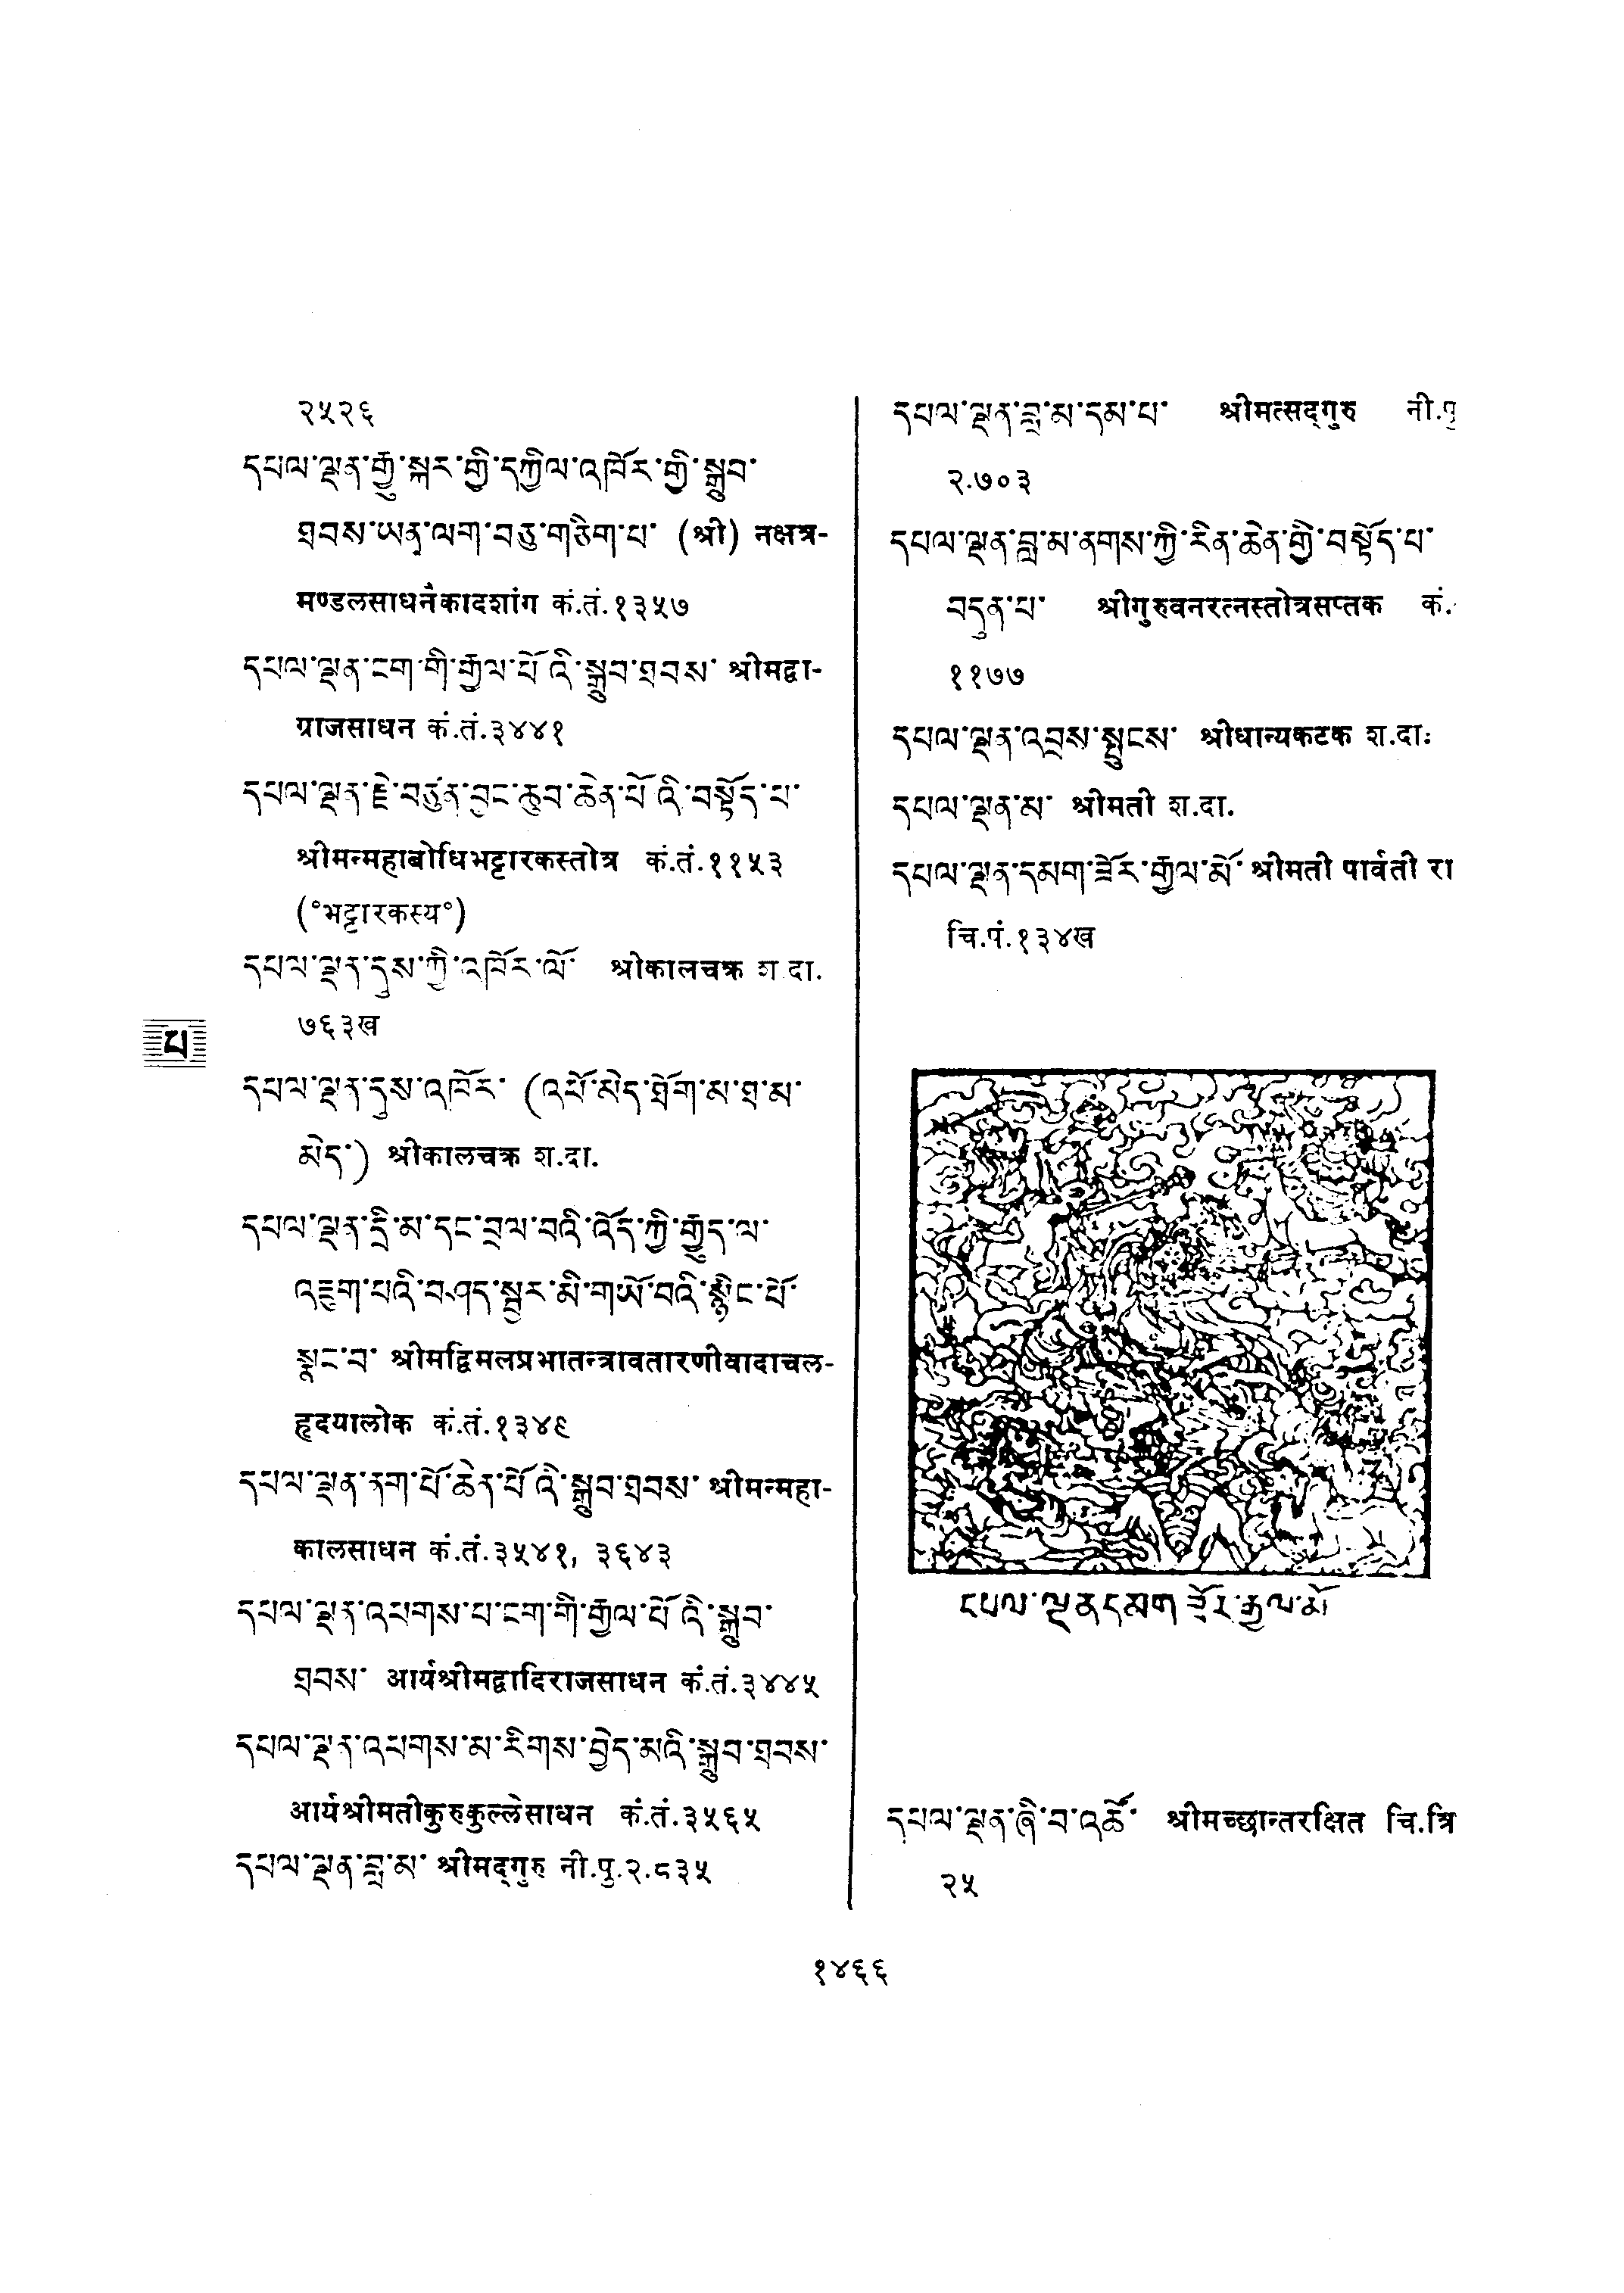 २५२६
དཔལ་ལྡན་རྒྱུ་སྐར་གྱི་དཀྱིལ་འཁོར་གྱི་སྒྲུབ་
ཐབས་ཡན་ལག་བཅུ་གཅིག་པ་ (श्री) नक्षत्र-
मण्डलसाधनैकादशांग कं.तं.१३५७
དཔལ་ལྡན་ངག་གི་རྒྱལ་པོ་འི་སྒྲུབ་ཐབས་ श्रीमद्वा-
ग्राजसाधन कं.तं.३४४१
དཔལ་ལྡན་རྗེ་བཙུན་བྱང་ཆུབ་ཆེན་པོ་འི་བསྟོད་པ་
श्रीमन्महाबोधिभट्टारकस्तोत्र कं.तं.११५३
(°भट्टारकस्य°)
དཔལ་ལྡན་དུས་ཀྱི་འཁོར་ལོ་ श्रीकालचक्र श.दा.
७६३ख
པ
དཔལ་ལྡན་དུས་འཁོར་ (འཕོ་མེད་ཐོག་མ་ཐ་མ་
མེད་) श्रीकालचक्र श.दा.
དཔལ་ལྡན་དྲི་མ་དང་བྲལ་བའི་འོད་ཀྱི་རྒྱུད་ལ་
འཇུག་པའི་བཤད་སྦྱར་མི་གཡོ་བའི་སྙིང་པོ་
སྣང་བ་ श्रीमद्विमलप्रभातन्त्रावतारणीवादाचल-
हृदयालोक कं.तं.१३४९
དཔལ་ལྡན་ནག་པོ་ཆེན་པོ་འི་སྒྲུབ་ཐབས་ श्रीमन्महा-
कालसाधन कं.तं.३५४१, ३६४३
དཔལ་ལྡན་འཕགས་པ་ངག་གི་རྒྱལ་པོ་འི་སྒྲུབ་
ཐབས་ आर्यश्रीमद्वादिराजसाधन कं.तं.३४४५
དཔལ་ལྡན་འཕགས་མ་རིགས་བྱེད་མའི་སྒྲུབ་ཐབས་
आर्यश्रीमतीकुरुकुल्लेसाधन कं.तं.३५६५
དཔལ་ལྡན་བླ་མ་ श्रीमद्गुरु नी.पु.२.८३५
དཔལ་ལྡན་བླ་མ་དམ་པ་ श्रीमत्सद्गुरु नी.पु
२.७०३
དཔལ་ལྡན་བླ་མ་ནགས་ཀྱི་རིན་ཆེན་གྱི་བསྟོད་པ་
བདུན་པ་ श्रीगुरुवनरत्नस्तोत्रसप्तक कं.
११७७
དཔལ་ལྡན་འབྲས་སྤུངས་ श्रीधान्यकटक श.दा.
དཔལ་ལྡན་མ་ श्रीमती श.दा.
དཔལ་ལྡན་དམག་ཟོར་རྒྱལ་མོ་ श्रीमती पार्वती रा
चि.पं.१३४ख
དཔལ་ལྡན་དམག་ཟོར་རྒྱལ་མོ
དཔལ་ལྡན་ཞི་བ་འཚོ་ श्रीमच्छान्तरक्षित चि.त्रि
२५
१४६६